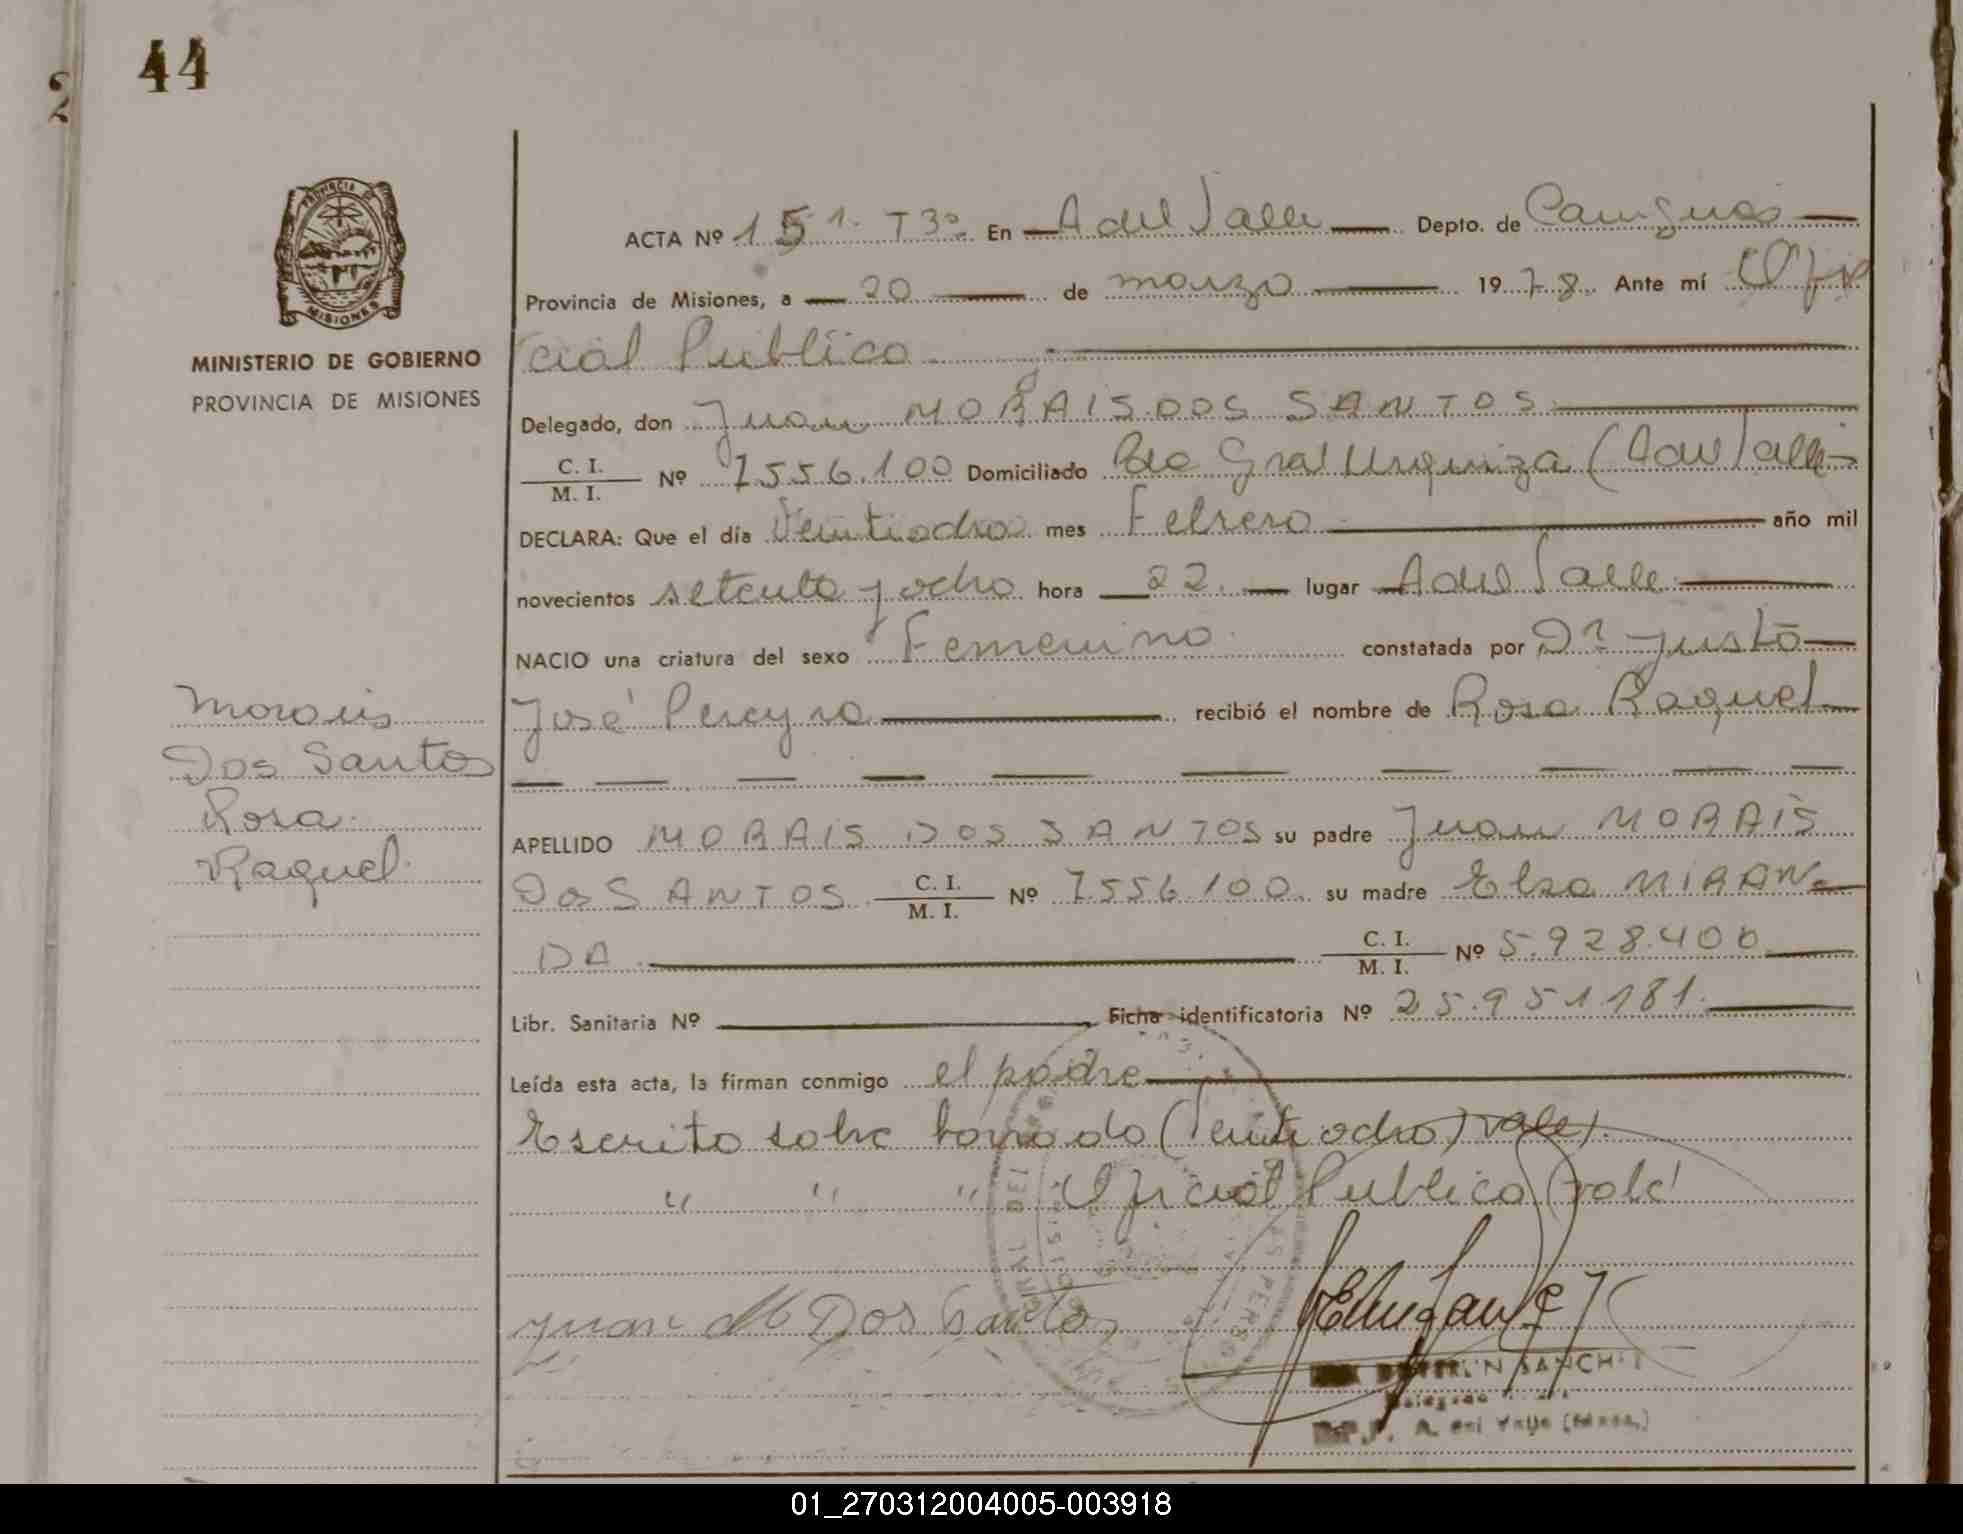 44
2
PROVINCIA DE
MISIONES
MINISTERIO DE GOBIERNO
PROVINCIA DE MISIONES
Morais
Dos Santos
Rosa
Raquel
ACTA Nº 151. T3º En A del Valle Depto. de Cainguas
Provincia de Misiones, a 20 de marzo 1978. Ante mí Ofi
cial Publico
Delegado, don Juan MORAIS DOS SANTOS
C. I. / M. I. Nº 7.556.100 Domiciliado Pto Gral Urquiza (A del Valle
DECLARA: Que el día Veintiocho mes Febrero año mil
novecientos setenta y ocho hora 22. lugar A del Valle
NACIO una criatura del sexo Femenino constatada por Dº Justo
José Pereyra recibió el nombre de Rosa Raquel
APELLIDO MORAIS DOS SANTOS su padre Juan MORAIS
DOS SANTOS C. I. / M. I. Nº 7.556.100. su madre Elsa MIRAN-
DA C. I. / M. I. Nº 5.928.400
Libr. Sanitaria Nº Ficha identificatoria Nº 25.951.181.
Leída esta acta, la firman conmigo el padre
Escrito sobre borrado (Veintiocho) vale.
" " " Oficial Publico vale
Juan M Dos Santos
SANCHEZ
Delegado
A. del Valle (Mnes.)
01_270312004005-003918